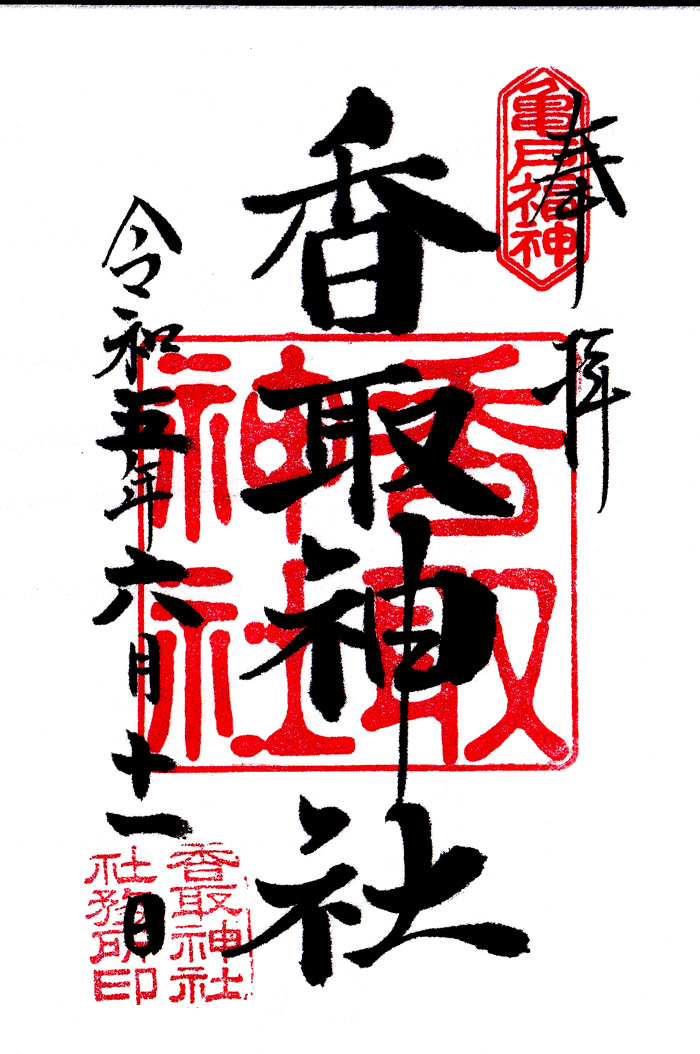 奉拝
亀戸福神
香取神社
香取
神社
令和五年六月十一日
香取神社
社務所印